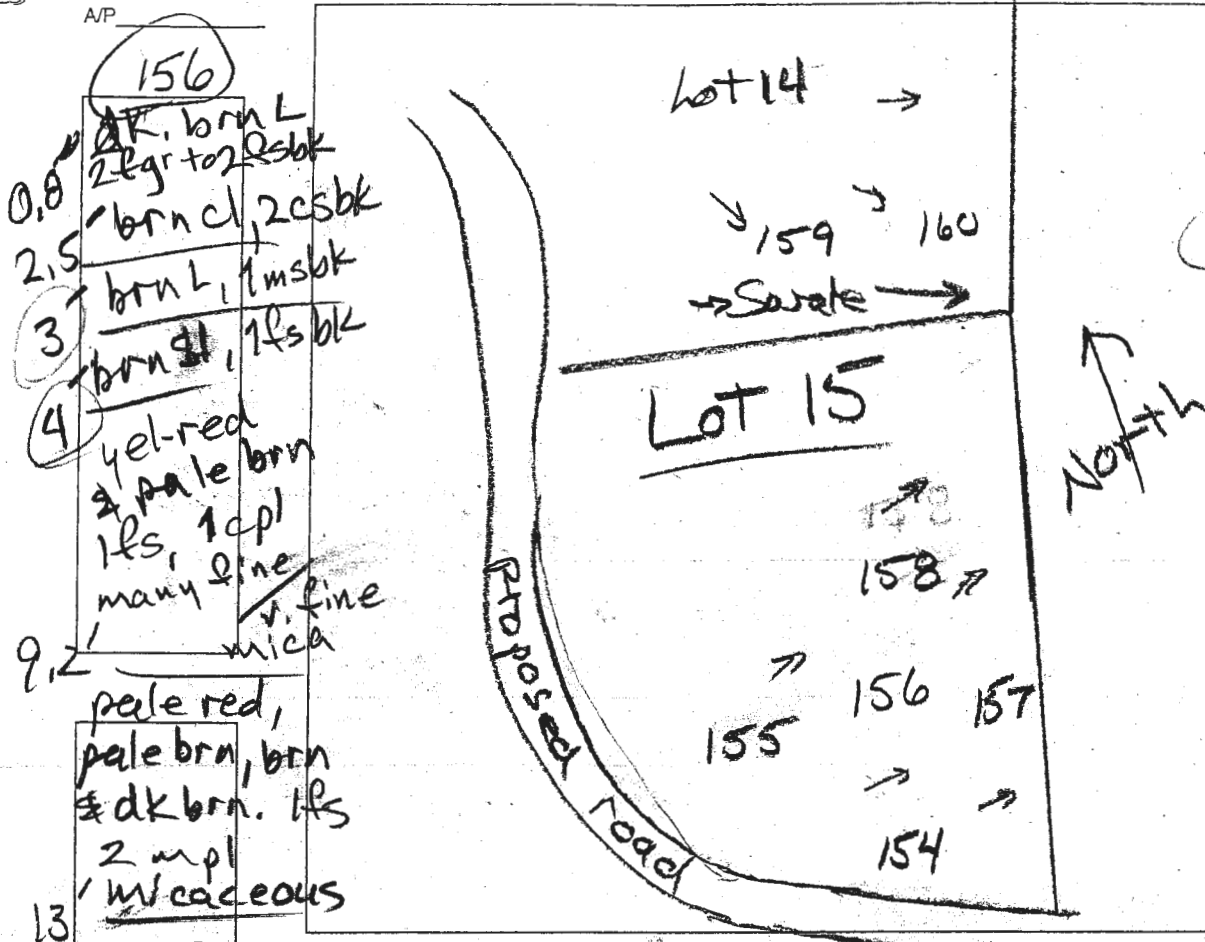 A/P
156
dk. brn L
2fgr to 2fsbk
0,8
brn cl, 2csbk
2,5
brn L, 1msbk
3
brn sl, 1fsbk
4
yel-red
& pale brn
lfs, 1cpl
many fine/v. fine
mica
9,2
pale red,
pale brn, brn
& dk brn. lfs
2 mpl
micaceous
13
Lot 14
159
160
Lot 15
North
158
158
156
157
155
154
Proposed road